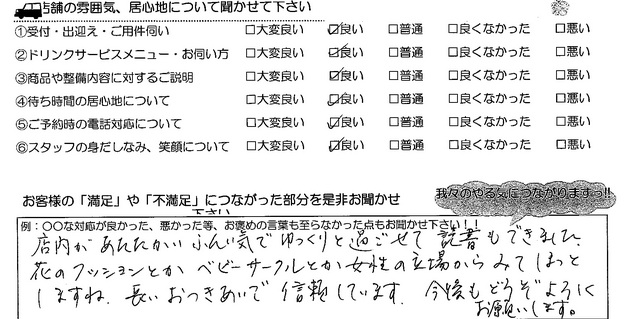 店舗の雰囲気、居心地について聞かせて下さい
①受付・出迎え・ご用件伺い □大変良い ☑良い □普通 □良くなかった □悪い
②ドリンクサービスメニュー・お伺い方 □大変良い ☑良い □普通 □良くなかった □悪い
③商品や整備内容に対するご説明 □大変良い ☑良い □普通 □良くなかった □悪い
④待ち時間の居心地について □大変良い ☑良い □普通 □良くなかった □悪い
⑤ご予約時の電話対応について □大変良い ☑良い □普通 □良くなかった □悪い
⑥スタッフの身だしなみ、笑顔について □大変良い ☑良い □普通 □良くなかった □悪い
我々のやる気につながりますっ!!
お客様の「満足」や「不満足」につながった部分を是非お聞かせ
下さい
例：〇〇な対応が良かった、悪かった等、お褒めの言葉も至らなかった点もお聞かせ下さい！！
店内があたたかいふんい気でゆっくりと過ごせて読書もできました.
花のクッションとか ベビーサークルとか女性の立場からみてほっと
しますね. 長いおつきあいで信頼しています. 今後もどうぞよろしく
お願いします。